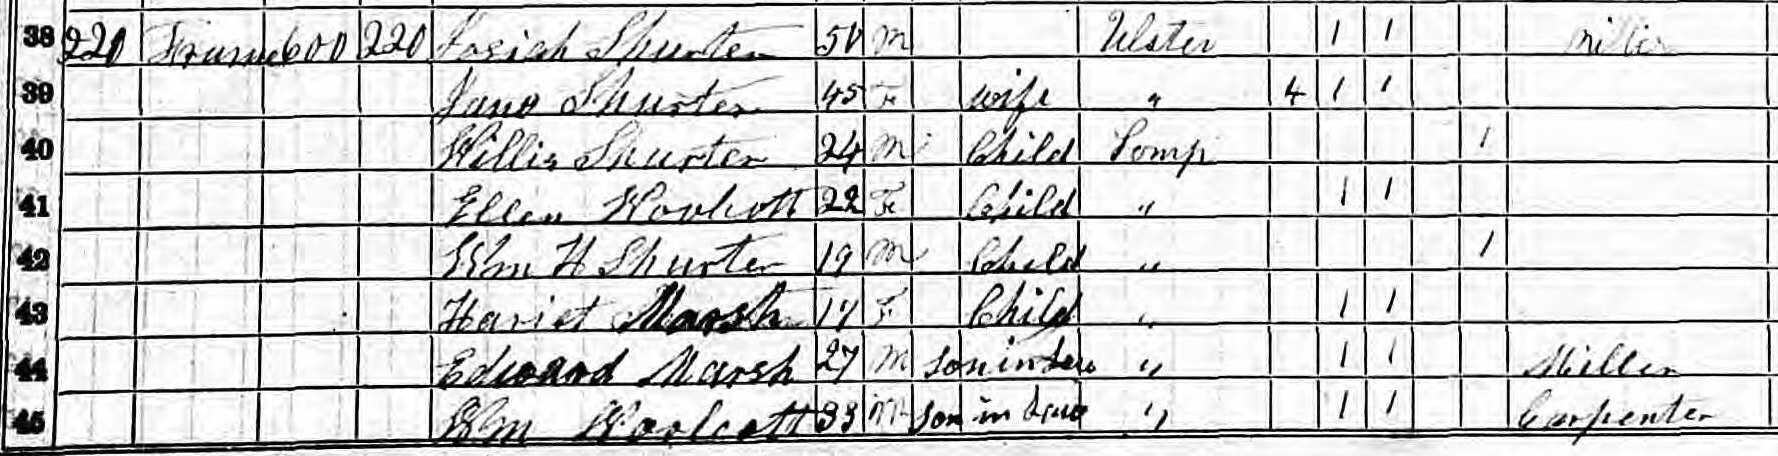 38 220 Frame 600 220 Josiah Shurter 51 M Ulster 1 1 Miller
39 Jane Shurter 45 F wife " 4 1 1
40 Willis Shurter 24 M Child Tomp 1
41 Ellen Woolcott 22 F Child " 1 1
42 Wm H Shurter 19 M Child " 1
43 Hariet Marsh 17 F Child " 1 1
44 Edward Marsh 27 M Son in Law " 1 1 Miller
45 Wm Woolcott 33 M Son in Law " 1 1 Carpenter